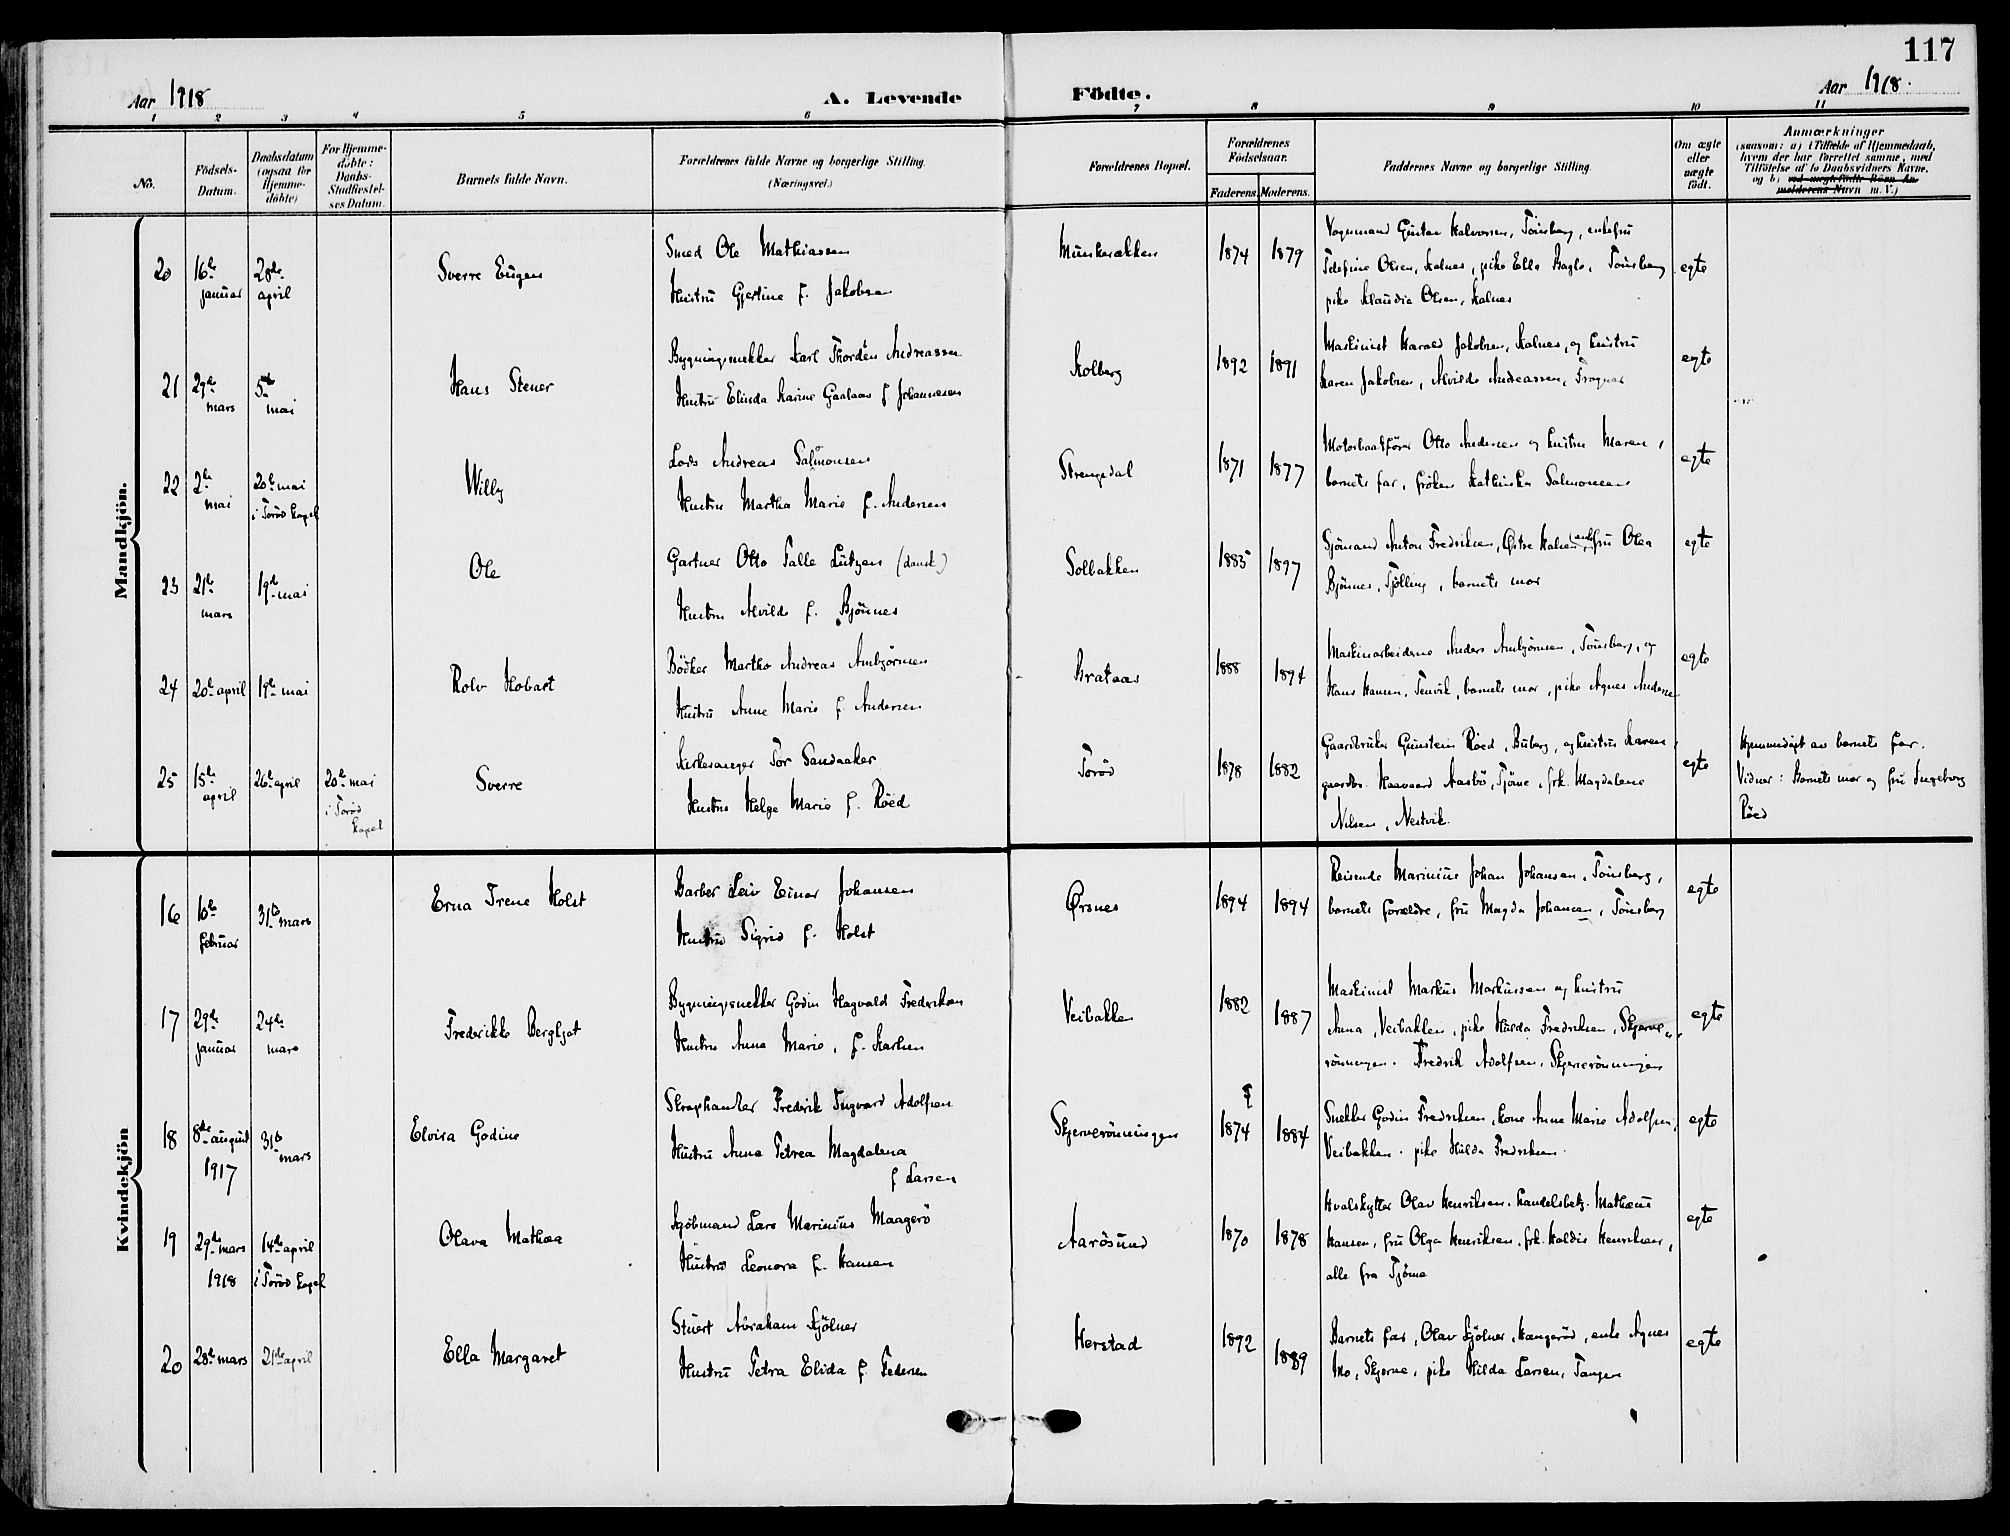 117
Aar 1918
A. Levende
Födte.
Aar 1918.
1 2 3 4 5 6 7 8 9 10 11
No.
Födsels-
Datum.
Daabsdatum
(ogsaa for
Hjemme-
döbte)
For Hjemme-
döbte:
Daabs-
Stadfæstel-
ses Datum.
Barnets fulde Navn.
Forældrenes fulde Navne og borgerlige Stilling.
(Næringsvei.)
Forældrenes Bopæl.
Forældrenes
Födselsaar.
Faderens. Moderens.
Faddernes Navne og borgerlige Stilling.
Om ægte
eller
uægte
födt.
Anmærkninger
(saasom: a) i Tilfælde af Hjemmedaab,
hvem der har forrettet samme, med
Tilföielse af to Daabsvidners Navne,
og b) ved uægtefödte Börn An-
melderens Navn m. V.)
Mandkjön.
20
16de
januar
28de
april
Sverre Eugen
Smed Ole Mathiassen
Hustru Gjertine f. Jakobsen
Munkerækken
1874 1879
Vognmand Gustav Halvorsen, Tönsberg, enkefru
Josefine Olsen, Kalnes, pike Ella Baglo, Tönsberg
pike Klaudia Olsen, Kalnes
egte
21
29de
mars
5te
mai
Hans Stener
Bygningssnekker Karl Thordén Andreassen
Hustru Elinda Karine Gaalaas f. Johannesen
Kolberg
1892 1891
Maskinist Harald Jakobsen, Kalnes, og hustru
Karen Jakobsen, Alvilde Andreassen, Frognar
egte
22
2de
mai
20de mai
i Torød kapel
Willy
Lods Andreas Salmonsen
Hustru Martha Marie f. Andersen
Strengsdal
1871 1877
Motorbaatfører Otto Andersen og hustru Maren,
barnets far, frøken Kathinka Salmonsen
egte
23
21de
mars
19de mai
Ole
Gartner Otto Palle Lützen (dansk)
Hustru Alvilde f. Bjönnes
Solbakken
1885 1897
Sjömand Anton Fredriksen, Østre Halsen, enkefru Olea
Bjönnes, Tjølling, barnets mor
egte
24
20de april
19de mai
Rolv Hobart
Bödker Martho Andreas Ambjörnsen
Hustru Anne Marie f. Andersen
Brataas
1888 1894
Maskinarbeiderne Anders Ambjörnsen, Tönsberg, og
Hans Hansen, Tenvik, barnets mor, pike Agnes Andersen
egte
25
15de
april
26de april
20de mai
i Torød
kapel
Sverre
Kirkesanger Tor Sandaaker
Hustru Helga Marie f. Röed
Torød
1878 1882
Gaardbruker Gunstein Röed, Buberg, og hustru Karen,
gaardbr. Haavaard Aasbö, Tjöme, frk. Magdalene
Nilsen, Nestvik.
egte
Hjemmedøpt av barnets far.
Vidner: Barnets mor og fru Ingeborg
Röed
Kvindekjön
16
10de
februar
31te mars
Erna Irene Holst
Barber Leiv Einar Johansen
Hustru Sigrid f. Holst
Ørsnes
1894 1894
Reisende Marinius Johan Johansen, Tönsberg,
barnets forældre, fru Magda Johansen, Tönsberg
egte
17
29de
januar
24de
mars
Fredrikke Bergljot
Bygningssnekker Godin Hagvald Fredriksen
Hustru Anna Marie, f. Karlsen
Veibakken
1882 1887
Maskinist Markus Markussen og hustru
Anna, Veibakken, pike Hilda Fredriksen, Skjerve-
rönningen. Fredrik Adolfsen, Skjerverönningen
egte
18
8de august
1917
31te
mars
Elvira Godine
Skraphandler Fredrik Ingvard Adolfsen
Hustru Anna Petrea Magdalena
f. Larsen
Skjerverönningen
1874 1884
Snekker Godin Fredriksen, kone Anne Marie Adolfsen,
Veibakken. pike Hilda Fredriksen.
egte
19
29de mars
1918
14de april
i Torød kapel
Olava Mathea
Sjöbmand Lars Marinius Maagerö
Hustru Leonora f. Hansen
Aarösund
1870 1878
Hvalskytter Olav Henriksen. handelsbetj. Mathæus
Hansen, fru Olga Henriksen. frk. Haldis Henriksen,
alle fra Tjöme
egte
20
28de mars
21de april
Ella Margaret
Stuert Abraham Kjölner
Hustru Petra Elida f. Pedersen
Herstad
1892 1889
Barnets far, Olav Kjölner, Haugeröd, enke Agnes
Mo, Skjerve, pike Hilda Larsen, Tangen
egte